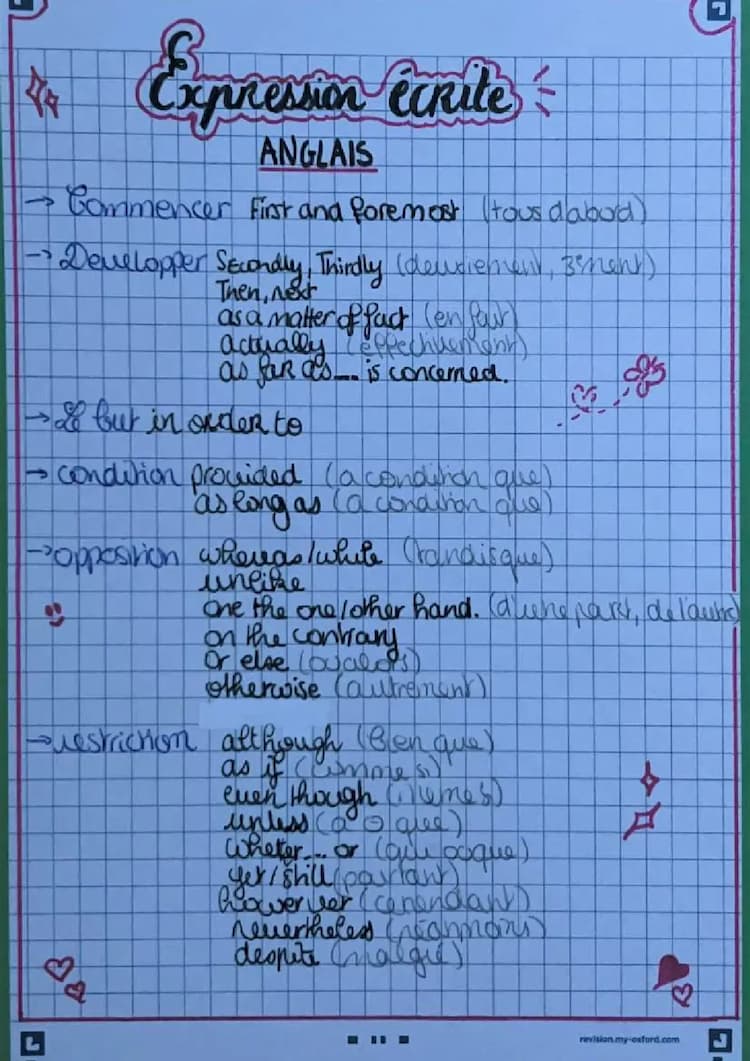 Expression écrite
ANGLAIS
→ Commencer First and foremost (tous dabord)
→ Developper Secondly, Thirdly (deuxiement, 3ement)
Then, next
as a matter of fact (en fait)
actually (effectivement)
as far as... is concerned.
→ Le but in order to
→ condition provided (a condition que)
as long as (a condition que)
→ opposition whereas/while (tandisque)
unlike
one the one/other hand. (d'une part, de l'autre)
on the contrary
or else (oualors)
otherwise (autrement)
→ restriction although (Bien que)
as if (comme si)
even though (memes)
unless (a que)
wheter... or (que)
yet/still (partant)
however (cependant)
nevertheless (néanmoins)
despite (malgré)
revision.my-oxford.com